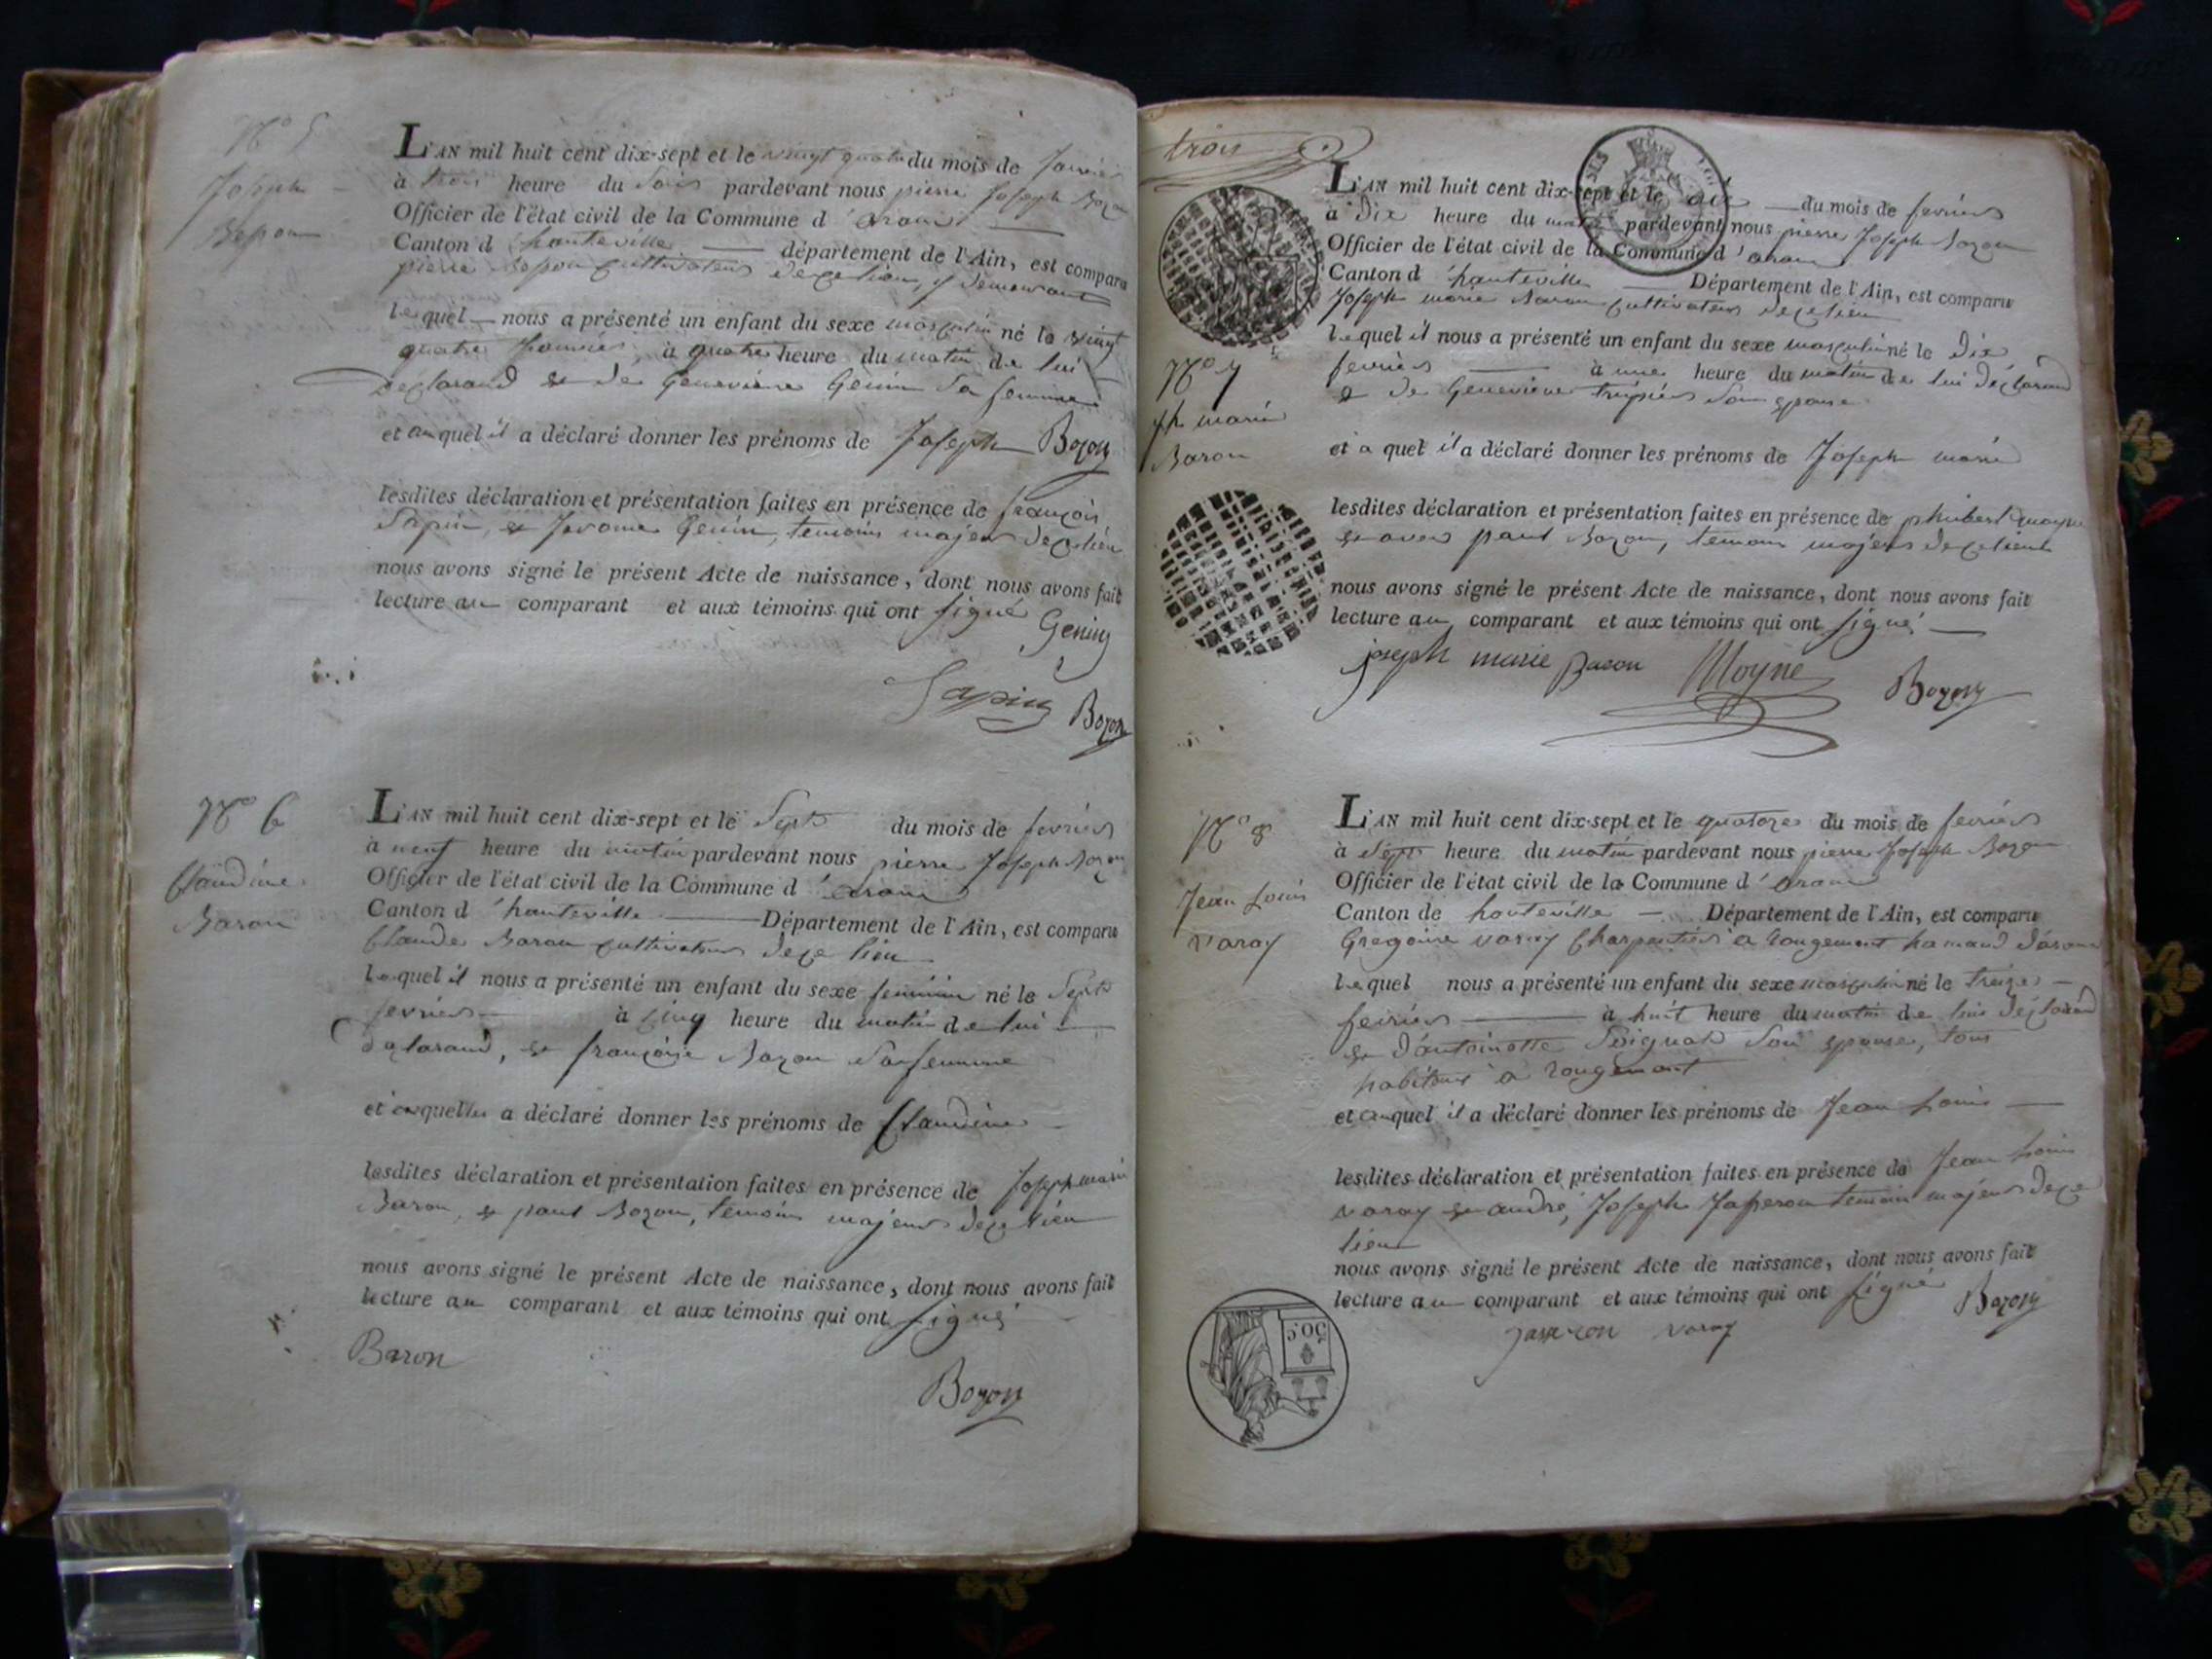 N.º 5
Joseph
L'AN mil huit cent dix-sept et le vingt quatre du mois de janvier
à trois heure du soir pardevant nous pierre Joseph Bozon
Officier de l'état civil de la Commune d'aranc
Canton d'hauteville département de l'Ain, est comparu
pierre cultivateur de ce lieu, y demeurant
lequel nous a présenté un enfant du sexe masculin né le vingt
quatre janvier, à quatre heure du matin de lui
declarand et de Genevieve Genin sa femme
et auquel il a déclaré donner les prénoms de Joseph Bozon
lesdites déclaration et présentation faites en présence de françois
Sapin, et Jerome Genin, temoins majeurs de ce lieu
nous avons signé le présent Acte de naissance, dont nous avons fait
lecture au comparant et aux témoins qui ont signé
Genin
Sapin
Bozon
N.º 6
Claudine
Baron
L'AN mil huit cent dix-sept et le Sept du mois de fevrier
à neuf heure du matin pardevant nous pierre Joseph Bozon
Officier de l'état civil de la Commune d'aranc
Canton d'hauteville Département de l'Ain, est comparu
Claude Baron cultivateur de ce lieu
lequel il nous a présenté un enfant du sexe feminin né le Sept
fevrier à cinq heure du matin de lui
declarand, et françoise Bozon sa femme
et a quelle a déclaré donner les prénoms de Claudine
lesdites déclaration et présentation faites en présence de Joseph marie
Baron, et paul Bozon, temoins majeurs de ce lieu
nous avons signé le présent Acte de naissance, dont nous avons fait
lecture au comparant et aux témoins qui ont signé
Baron
Bozon
trois
L'AN mil huit cent dix-sept et le dix du mois de fevrier
à Dix heure du matin pardevant nous pierre Joseph Bozon
Officier de l'état civil de la Commune d'aranc
Canton d'hauteville Département de l'Ain, est comparu
Joseph marie Baron cultivateur de ce lieu
lequel il nous a présenté un enfant du sexe masculin né le Dix
fevrier à une heure du matin de lui déclarand
et de Genevieve son epouse
N.º 7
ph marie
Baron
et a quel il a déclaré donner les prénoms de Joseph marie
lesdites déclaration et présentation faites en présence de phibert moyne
et avec paul Bozon, temoins majeurs de ce lieu
nous avons signé le présent Acte de naissance, dont nous avons fait
lecture au comparant et aux témoins qui ont signé
joseph marie Baron Moyne
Bozon
N.º 8
Jean Louis
varay
L'AN mil huit cent dix-sept et le quatorze du mois de fevrier
à Sept heure du matin pardevant nous pierre Joseph Bozon
Officier de l'état civil de la Commune d'aranc
Canton de hauteville Département de l'Ain, est comparu
Gregoire varay Charpentier a rougemont hamaud d'aranc
lequel nous a présenté un enfant du sexe masculin né le treize
fevrier à huit heure du matin de lui déclarand
et d'antoinette son epouse, tous
habitans a rougemont
et auquel il a déclaré donner les prénoms de Jean Louis
lesdites déclaration et présentation faites en présence de Jean Louis
varay et andré, Joseph Jasseron temoin majeurs de ce
lieu
nous avons signé le présent Acte de naissance, dont nous avons fait
lecture au comparant et aux témoins qui ont signé
Bozon
jasseron varay
50 c.